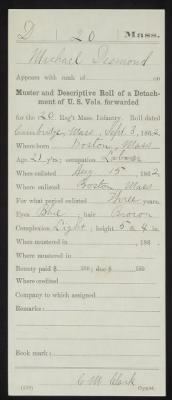 D | 20 | Mass.
Michael Desmond
Appears with rank of on
Muster and Descriptive Roll of a Detach-
ment of U. S. Vols. forwarded
for the 20 Reg't Mass. Infantry. Roll dated
Cambridge, Mass, Sept 3, 1862
Where born Boston, Mass
Age 21 y'rs; occupation Laborer
When enlisted Aug 15, 1862
Where enlisted Boston Mass
For what period enlisted Three years.
Eyes Blue; hair Brown
Complexion Light; height 5 ft. 8 in.
When mustered in , 186
Where mustered in
Bounty paid $ 100; due $ 100
Where credited
Company to which assigned
Remarks:
Book mark:
C M Clark
(339) Copyist.